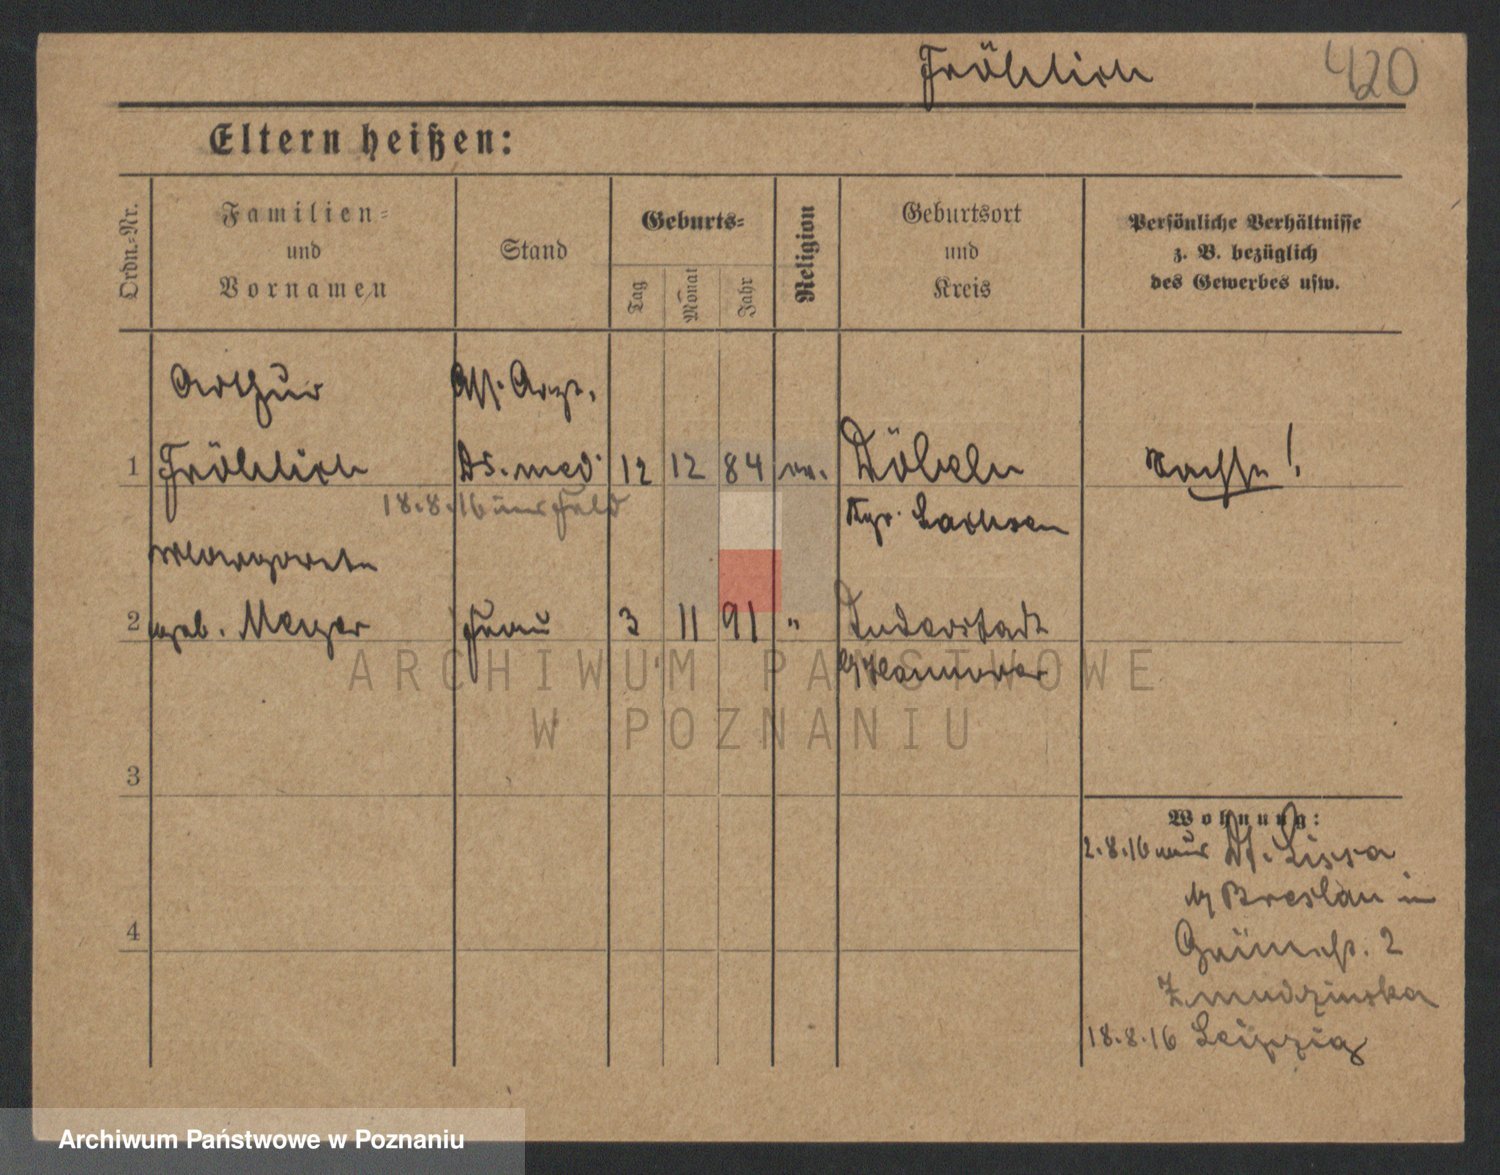 Fröhlich 420
Eltern heißen:
Ordn.-Nr.
Familien-
und
Vornamen
Stand
Geburts-
Tag
Monat
Jahr
Religion
Geburtsort
und
Kreis
Persönliche Verhältnisse
z. B. bezüglich
des Gewerbes usw.
Arthur Ass. Arzt.
1 Fröhlich Dr. med. 12 12 84 ev. Döbeln Sachse!
18.8.16 ins Feld
Kgr. Sachsen
Margarete
2 geb. Meyer Frau 3 11 91 " Duderstadt
Hannover
3
4
Wohnung:
2.8.16 aus Dt. Lissa
b/ Breslau in
Grünestr. 2
Zmudzinska
18.8.16 Leipzig
ARCHIWUM PAŃSTWOWE
W POZNANIU
Archiwum Państwowe w Poznaniu